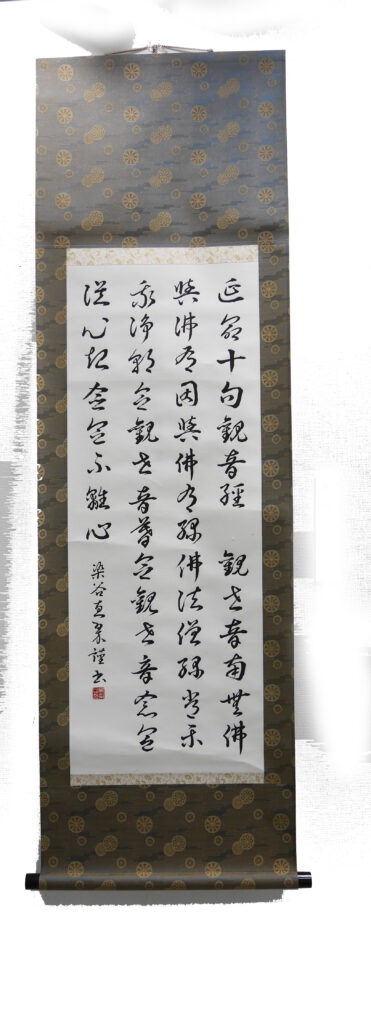 延命十句觀音經　觀世音南無佛
與佛有因與佛有緣佛法僧緣常樂
我淨朝念觀世音暮念觀世音念念
從心起念念不離心
染谷 謹書